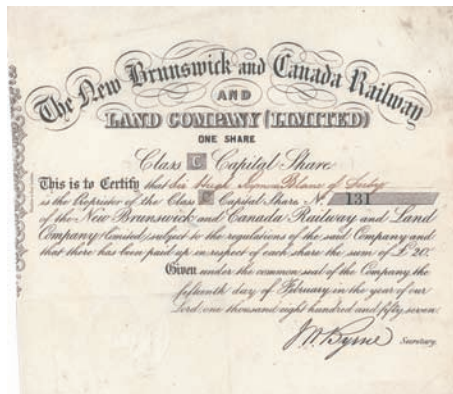 The New Brunswick and Canada Railway
AND
LAND COMPANY (LIMITED)
ONE SHARE
Class C Capital Share
This is to Certify that Sir Hugh
is the Proprietor of the Class C Capital Share No. 131
of the New Brunswick and Canada Railway and Land
Company Limited, subject to the regulations of the said Company and
that there has been paid up in respect of each share the sum of £20.
Given under the common seal of the Company, the
fifteenth day of February in the year of our
Lord one thousand eight hundred and fifty seven
J W Byrne Secretary.